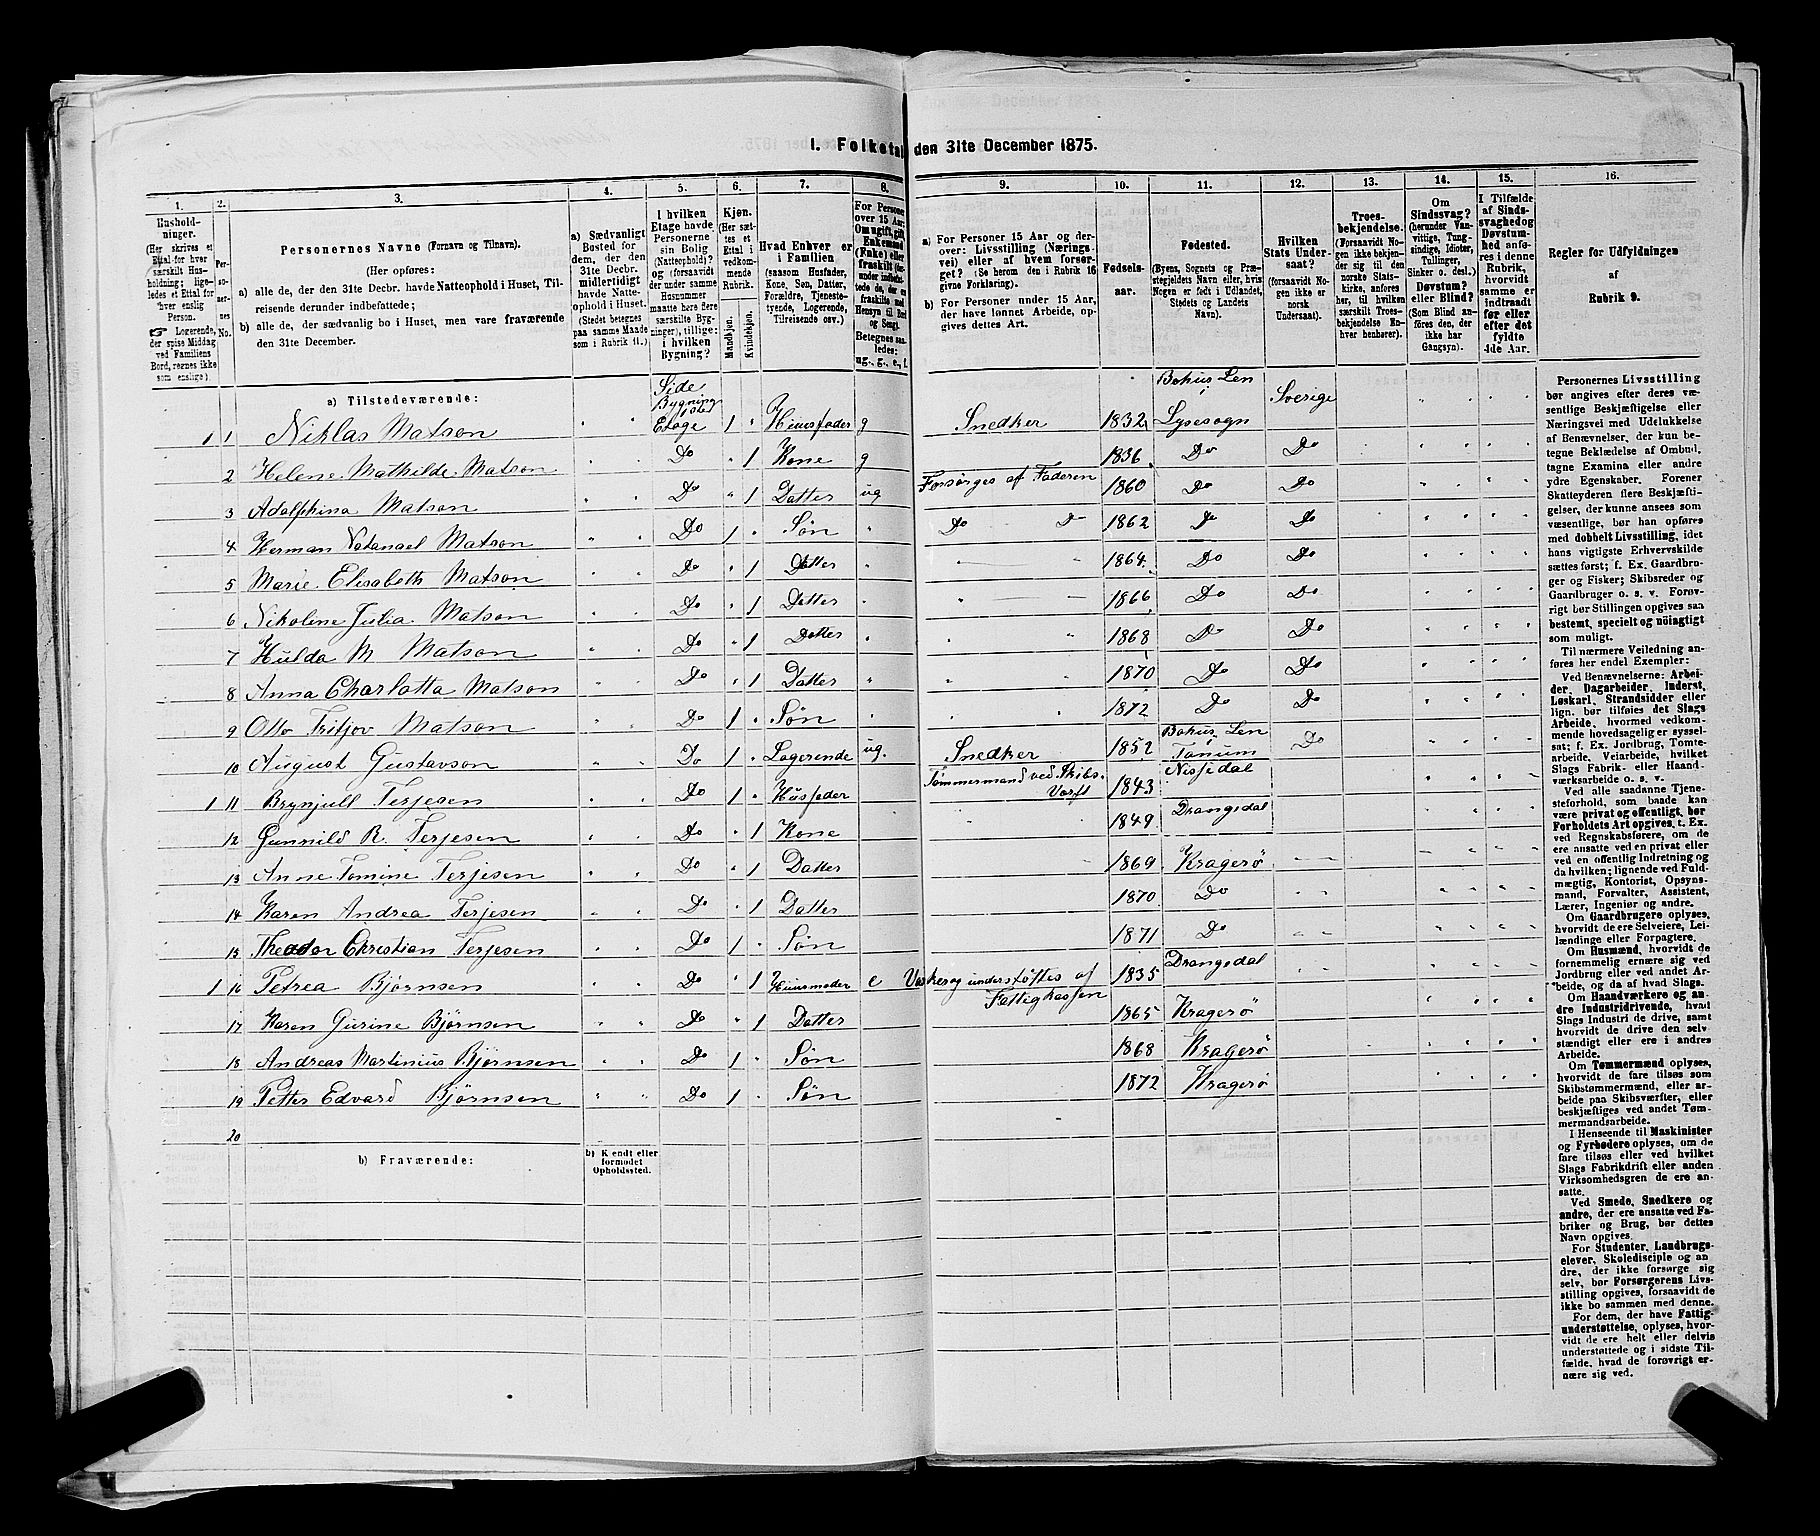 I. Folketal den 31te December 1875.
1. 2. 3. 4. 5. 6. 7. 8. 9. 10. 11. 12. 13. 14. 15. 16.
Hushold-
ninger.
(Her skrives et
Ettal for hver
særskilt Hus-
holdning; lige-
ledes et Ettal for
hver enslig
Person.
☞ Logerende,
der spise Middag
ved Familiens
Bord, regnes ikke
som enslige).
Per-
so-
ner-
nes
No.
Personernes Navne (Fornavn og Tilnavn).
(Her opføres:
a) alle de, der den 31te Decbr. havde Natteophold i Huset, Til-
reisende derunder indbefattede;
b) alle de, der sædvanlig bo i Huset, men vare fraværende
den 31te December.
a) Sædvanligt
Bosted for
dem, der den
31te Decbr.
midlertidigt
havde Natte-
ophold i Huset.
(Stedet betegnes
paa samme Maade
som i Rubrik 11.)
I hvilken
Etage havde
Personerne
sin Bolig
(Natteophold)?
og (forsaavidt
der under samme
Husnummer
maatte høre flere
særskilte Byg-
ninger), tillige:
i hvilken
Bygning?
Kjøn.
(Her sæt-
tes et
Ettal i
vedkom-
mende
Rubrik.
Mandkjøn.
Kvindekjøn.
Hvad Enhver er
i Familien
(saasom Husfader,
Kone, Søn, Datter,
Forældre, Tjeneste-
tyende, Logerende,
Tilreisende osv.)
For Personer
over 15 Aar:
Om ugift, gift,
Enkemand
(Enke) eller
fraskilt
Betegnes saa-
ledes:
ug., g., e., f.
a) For Personer 15 Aar og der-
over: Livsstilling (Nærings-
vei) eller af hvem forsør-
get? (Se herom den i Rubrik 16
givne Forklaring).
b) For Personer under 15 Aar,
der have lønnet Arbeide, op-
gives dettes Art.
Fødsels-
aar.
Fødested.
(Byens, Sognets og Præ-
stegjeldets Navn eller, hvis
Nogen er født i Udlandet,
Stedets og Landets
Navn).
Hvilken
Stats Under-
saat?
(forsaavidt No-
gen ikke er
norsk
Undersaat).
Troes-
bekjendelse.
(Forsaavidt No-
gen ikke bekjen-
der sig til den
norske Stats-
kirke, anføres
her, til hvilken
særskilt Troes-
bekjendelse En-
hver henhører).
Om
Sindssvag?
(herunder Van-
vittige, Tung-
sindige, Idioter,
Tullinger,
Sinker o. desl.)
Døvstum?
eller Blind?
(Som Blind an-
føres den, der
ikke har
Gangsyn).
I Tilfælde
af Sinds-
svaghed og
Døvstum-
hed anfø-
res i denne
Rubrik,
hvorvidt
samme er
indtraadt
før eller
efter det
fyldte
4de Aar.
Regler for Udfyldningen
af
Rubrik 9.
a) Tilstedeværende:
1 1 Niklas Matson Side Bygning 1ste Etage 1 Huusfader g Snedker 1832 Bohus Len Lysesogn Sverige
2 Helene Mathilde Matson Do 1 Kone g 1836 Do Do
3 Adolphina Matson Do 1 Datter ug Forsørges af Faderen 1860 Do Do
4 Herman Natanael Matson Do 1 Søn Do D 1862 Do Do
5 Marie Elisabeth Matson Do 1 Datter 1864 Do Do
6 Nikoline Julia Matson Do 1 Datter 1866 Do Do
7 Hulda M Matson Do 1 Datter 1868 Do Do
8 Anna Charlotta Matson Do 1 Datter 1870 Do Do
9 Otto Tritjov Matson Do 1 Søn 1872 Do Do
10 August Gustavson Do 1 Logerende ug. Snedker 1852 Bohus Len Tanum Do
1 11 Brynjull Terjesen Do 1 Husfader Tømmermand ved Skibs Værft 1843 Nissedal
12 Gunnild R. Terjesen Do 1 Kone 1849 Drangedal
13 Anne Tomine Terjesen Do 1 Datter 1869 Kragerø
14 Karen Andrea Terjesen Do 1 Datter 1870 Do
15 Theodor Christian Terjesen Do 1 Søn 1871 Do
1 16 Petrea Bjørnsen Do 1 Huusmoder e Vasker og understøttes af Fattigkassen 1835 Drangedal
17 Karen Gurine Bjørnsen Do 1 Datter 1865 Kragerø
18 Andreas Martinius Bjørnsen Do 1 Søn 1868 Kragerø
19 Petter Edvard Bjørnsen Do 1 Søn 1872 Kragerø
20
b) Fraværende:
b) Kendt eller
formodet
Opholdssted.
Personernes Livsstilling
bør angives efter deres væ-
sentlige Beskjæftigelse eller
Næringsvei med Udelukkelse
af Benævnelser, der kun be-
tegne Beklædelse af Ombud,
tagne Examina eller andre
ydre Egenskaber. Forener
Skatteyderen flere Beskjæfti-
gelser, der kunne ansees som
væsentlige, bør han opføres
med dobbelt Livsstilling, idet
hans vigtigste Erhvervskilde
sættes først; f. Ex. Gaardbru-
ger og Fisker; Skibsreder og
Gaardbruger o. s. v. Forøv-
rigt bør Stillingen opgives saa
bestemt, specielt og nøiagtigt
som muligt.
Til nærmere Veiledning an-
føres her endel Exempler:
Ved Benævnelserne: Arbei-
der, Dagarbeider, Inderst,
Løskarl, Strandsidder eller
lign. bør tilføies det Slags
Arbeide, hvormed vedkom-
mende hovedsagelig er syssel-
sat; f. Ex. Jordbrug, Tomte-
arbeide, Veiarbeide, hvilket
Slags Fabrik- eller Haand-
værksarbeide o. s. v.
Ved alle saadanne Tjene-
steforhold, som baade kan
være privat og offentlig, bør
Forholdets Art opgives, t. Ex.
ved Regnskabsførere, om de
ere ansatte ved en privat eller
ved en offentlig Indretning og
da hvilken; lignende ved Fuld-
mægtig, Kontorist, Opsyns-
mand, Forvalter, Assistent,
Lærer, Ingeniør og andre.
Om Gaardbrugere oplyses,
hvorvidt de ere Selveiere, Lei-
lændinge eller Forpagtere.
Om Husmænd, hvorvidt de
fornemmelig ernære sig ved
Jordbrug eller ved andet Ar-
beide, og da af hvad Slags.
Om Haandværkere og an-
dre Industridrivende, hvad
Slags Industri de drive, samt
hvorvidt de drive den selv-
stændigt eller ere i andres
Arbeide.
Om Tømmermænd oplyses,
hvorvidt de fare tilsøs som
Skibstømmermænd, eller ar-
beide paa Skibsværfter, eller
beskjæftiges ved andet Tøm-
mermandsarbeide.
I Henseende til Maskinister
og Fyrbødere oplyses, om de
fare tilsøs eller ved hvilket
Slags Fabrikdrift eller anden
Virksomhedsgren de ere an-
satte.
Ved Smede, Snedkere og
andre, der ere ansatte ved Fa-
briker og Brug, bør dettes
Navn opgives.
For Studenter, Landbrugs-
elever, Skoledisciple og an-
dre, der ikke forsørge sig
selv, bør Forsørgerens Livs-
stilling opgives, forsaavidt de
ikke bo sammen med denne.
For dem, der have Fattig-
understøttelse, oplyses, hvor-
vidt de ere helt eller delvis
understøttede og i sidste Til-
fælde, hvad de forøvrigt er-
nære sig ved.